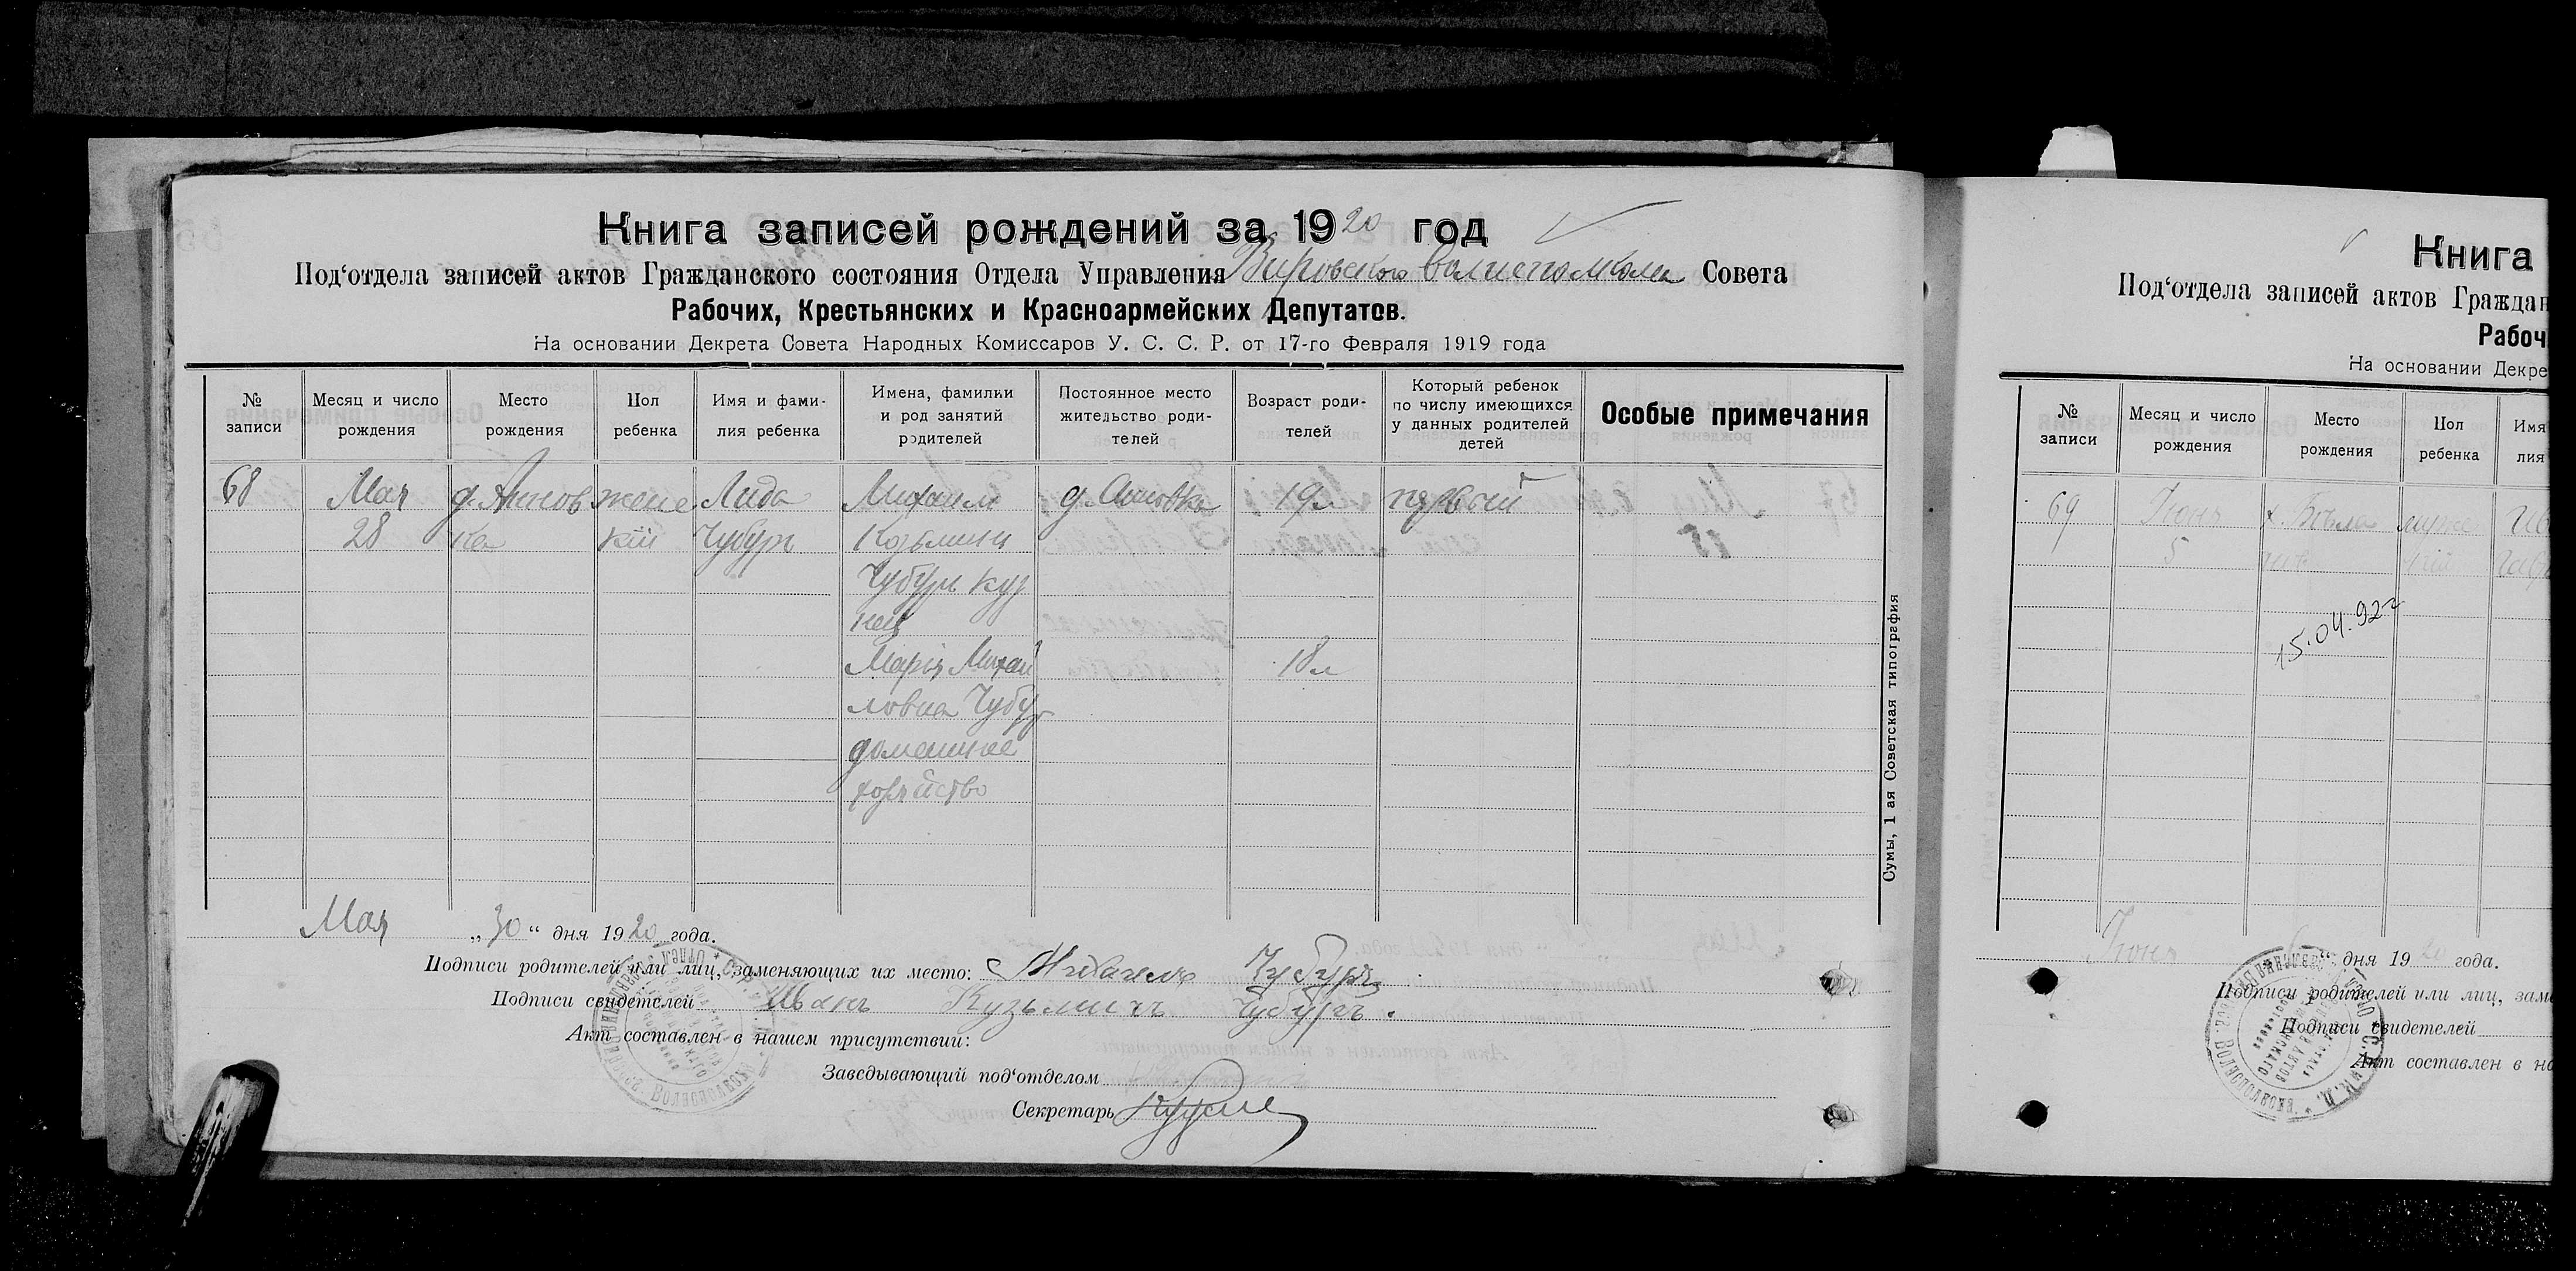 Книга записей рождений за 1920 год
Под‘отдела записей актов Гражданского состояния Отдела Управления Вировского Совета
Рабочих, Крестьянских и Красноармейских Депутатов.
На основании Декрета Совета Народных Комиссаров У. С. С. Р. от 17-го Февраля 1919 года
№ записи
Месяц и число рождения
Место рождения
Пол ребенка
Имя и фами-
лия ребенка
Имена, фамилии
и род занятий
родителей
Постоянное место
жительство роди-
телей
Возраст роди-
телей
Который ребенок
по числу имеющихся
у данных родителей
детей
Особые примечания
68
Мая
28
д. Аннов
ка
женс
кій
Лида
Чубуръ
Михаил
Козьмичъ
Чубуръ куз
нец
Марія Михай
ловна Чубур
домашнее
хозяйство
д. Анновка
19 л
18 л
первый
Сумы, 1 ая Советская типография
Мая „30“ дня 1920 года.
Подписи родителей или лиц, заменяющих их место: Михаилъ Чубуръ
Подписи свидетелей Иванъ Кузьмичъ Чубуръ.
Акт составлен в нашем присутствий:
Заведывающий под‘отделом
Секретарь
Книга
Под‘отдела записей актов Граждан
Рабоч
На основании Декре
№ записи
Месяц и число рождения
Место рождения
Пол ребенка
Имя
лия
69
Іюнь
5
х. Бѣла
муж
Ив
15.04.92г
Іюня „ “ дня 1920 года.
Подписи родителей или лиц, заме
Подписи свидетелей
Акт составлен в на